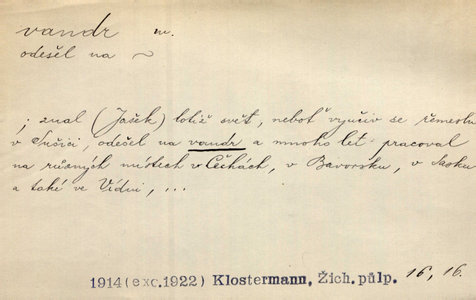 vandr m.
odešel na ~
; znal (Jašek) totiž svět, neboť vyučiv se řemeslu
v Sušici, odešel na vandr a mnoho let pracoval
na různých místech v Čechách, v Bavorsku, v Sasku
a také ve Vídni, ...
1914(exc.1922) Klostermann, Žich. půlp. 16, 16.